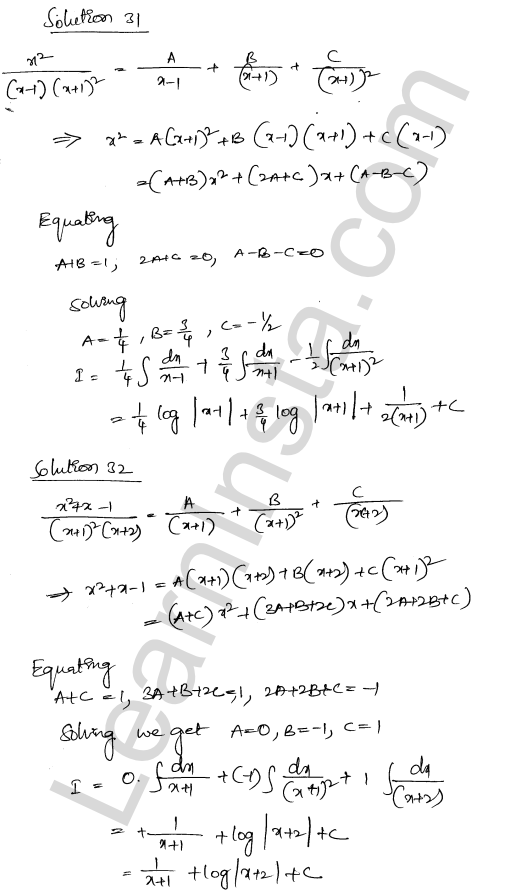 Solution 31
x²/((x-1)(x+1)²) = A/(x-1) + B/(x+1) + C/(x+1)²
⇒ x² = A(x+1)² + B(x-1)(x+1) + C(x-1)
= (A+B)x² + (2A+C)x + (A-B-C)
Equating
A+B=1, 2A+C=0, A-B-C=0
Solving
A=1/4, B=3/4, C=-1/2
I = 1/4 ∫ dx/(x-1) + 3/4 ∫ dx/(x+1) - 1/2 ∫ dx/(x+1)²
= 1/4 log |x-1| + 3/4 log |x+1| + 1/(2(x+1)) + C
Solution 32
(x²+x-1)/((x+1)²(x+2)) = A/(x+1) + B/(x+1)² + C/(x+2)
⇒ x²+x-1 = A(x+1)(x+2) + B(x+2) + C(x+1)²
= (A+C)x² + (3A+B+2C)x + (2A+2B+C)
Equating
A+C=1, 3A+B+2C=1, 2A+2B+C=-1
Solving we get A=0, B=-1, C=1
I = 0. ∫ dx/(x+1) + (-1) ∫ dx/(x+1)² + 1 ∫ dx/(x+2)
= + 1/(x+1) + log |x+2| + C
= 1/(x+1) + log |x+2| + C
LearnInsta.com